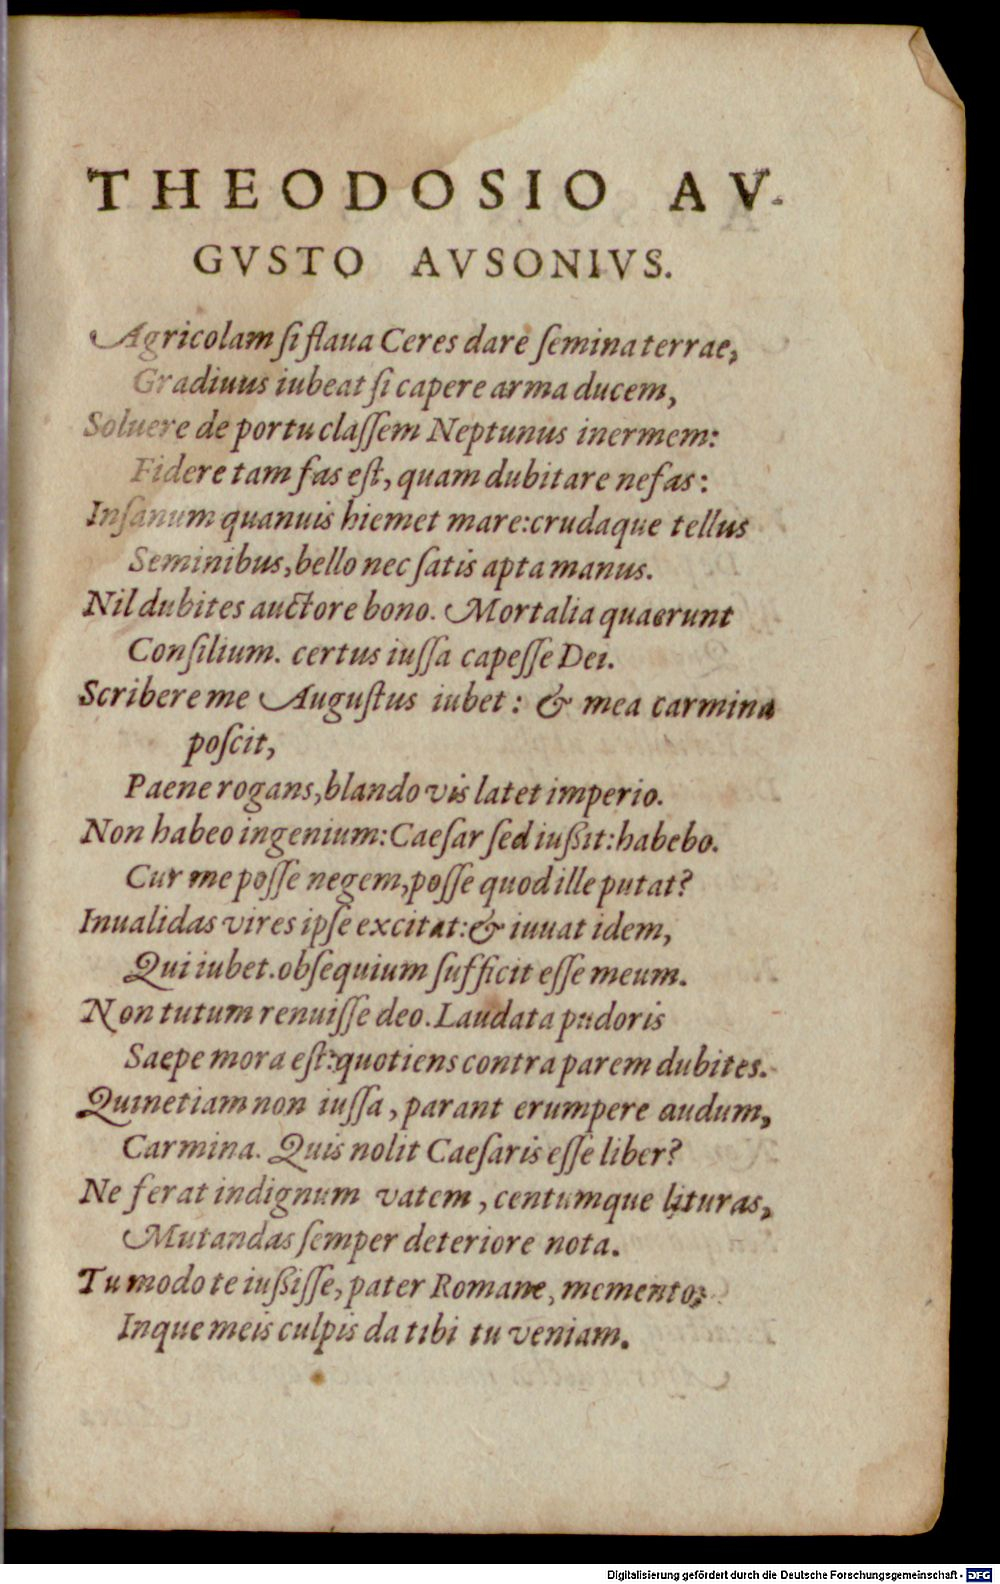 THEODOSIO AV-
GVSTO AVSONIVS.
Agricolam ſi flaua Ceres dare ſemina terrae,
Gradiuus iubeat ſi capere arma ducem,
Soluere de portu claſſem Neptunus inermem:
Fidere tam fas eſt, quam dubitare nefas:
Inſanum quanuis hiemet mare: crudaque tellus
Seminibus, bello nec ſatis apta manus.
Nil dubites auctore bono. Mortalia quaerunt
Conſilium. certus iuſſa capeſſe Dei.
Scribere me Auguſtus iubet: & mea carmina
poſcit,
Paene rogans, blando vis latet imperio.
Non habeo ingenium: Caeſar ſed iußit: habebo.
Cur me poſſe negem, poſſe quod ille putat?
Inualidas vires ipſe excitat: & iuuat idem,
Qui iubet. obſequium ſufficit eſſe meum.
Non tutum renuiſſe deo. Laudata pudoris
Saepe mora eſt: quotiens contra parem dubites.
Quinetiam non iuſſa, parant erumpere audum,
Carmina. Quis nolit Caeſaris eſſe liber?
Ne ferat indignum vatem, centumque lituras,
Mutandas ſemper deteriore nota.
Tu modo te iußiſſe, pater Romane, memento;
Inque meis culpis da tibi tu veniam.
Digitalisierung gefördert durch die Deutsche Forschungsgemeinschaft - DFG